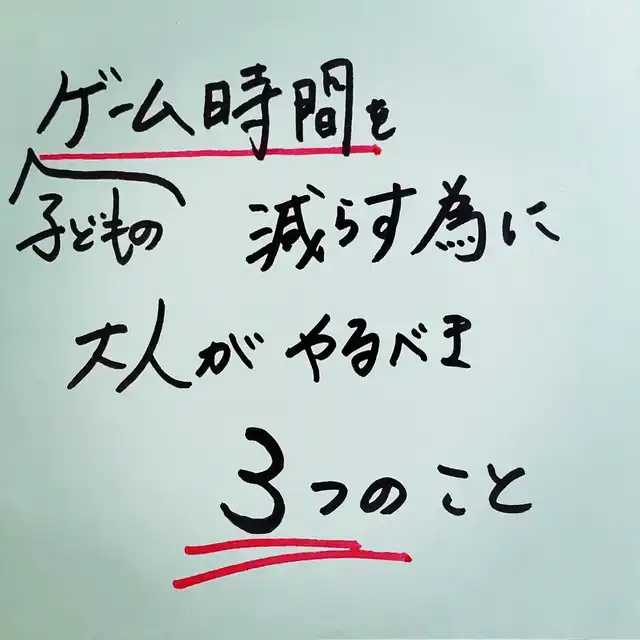 ゲーム時間を
子どもの 減らす為に
大人がやるべき
3つのこと